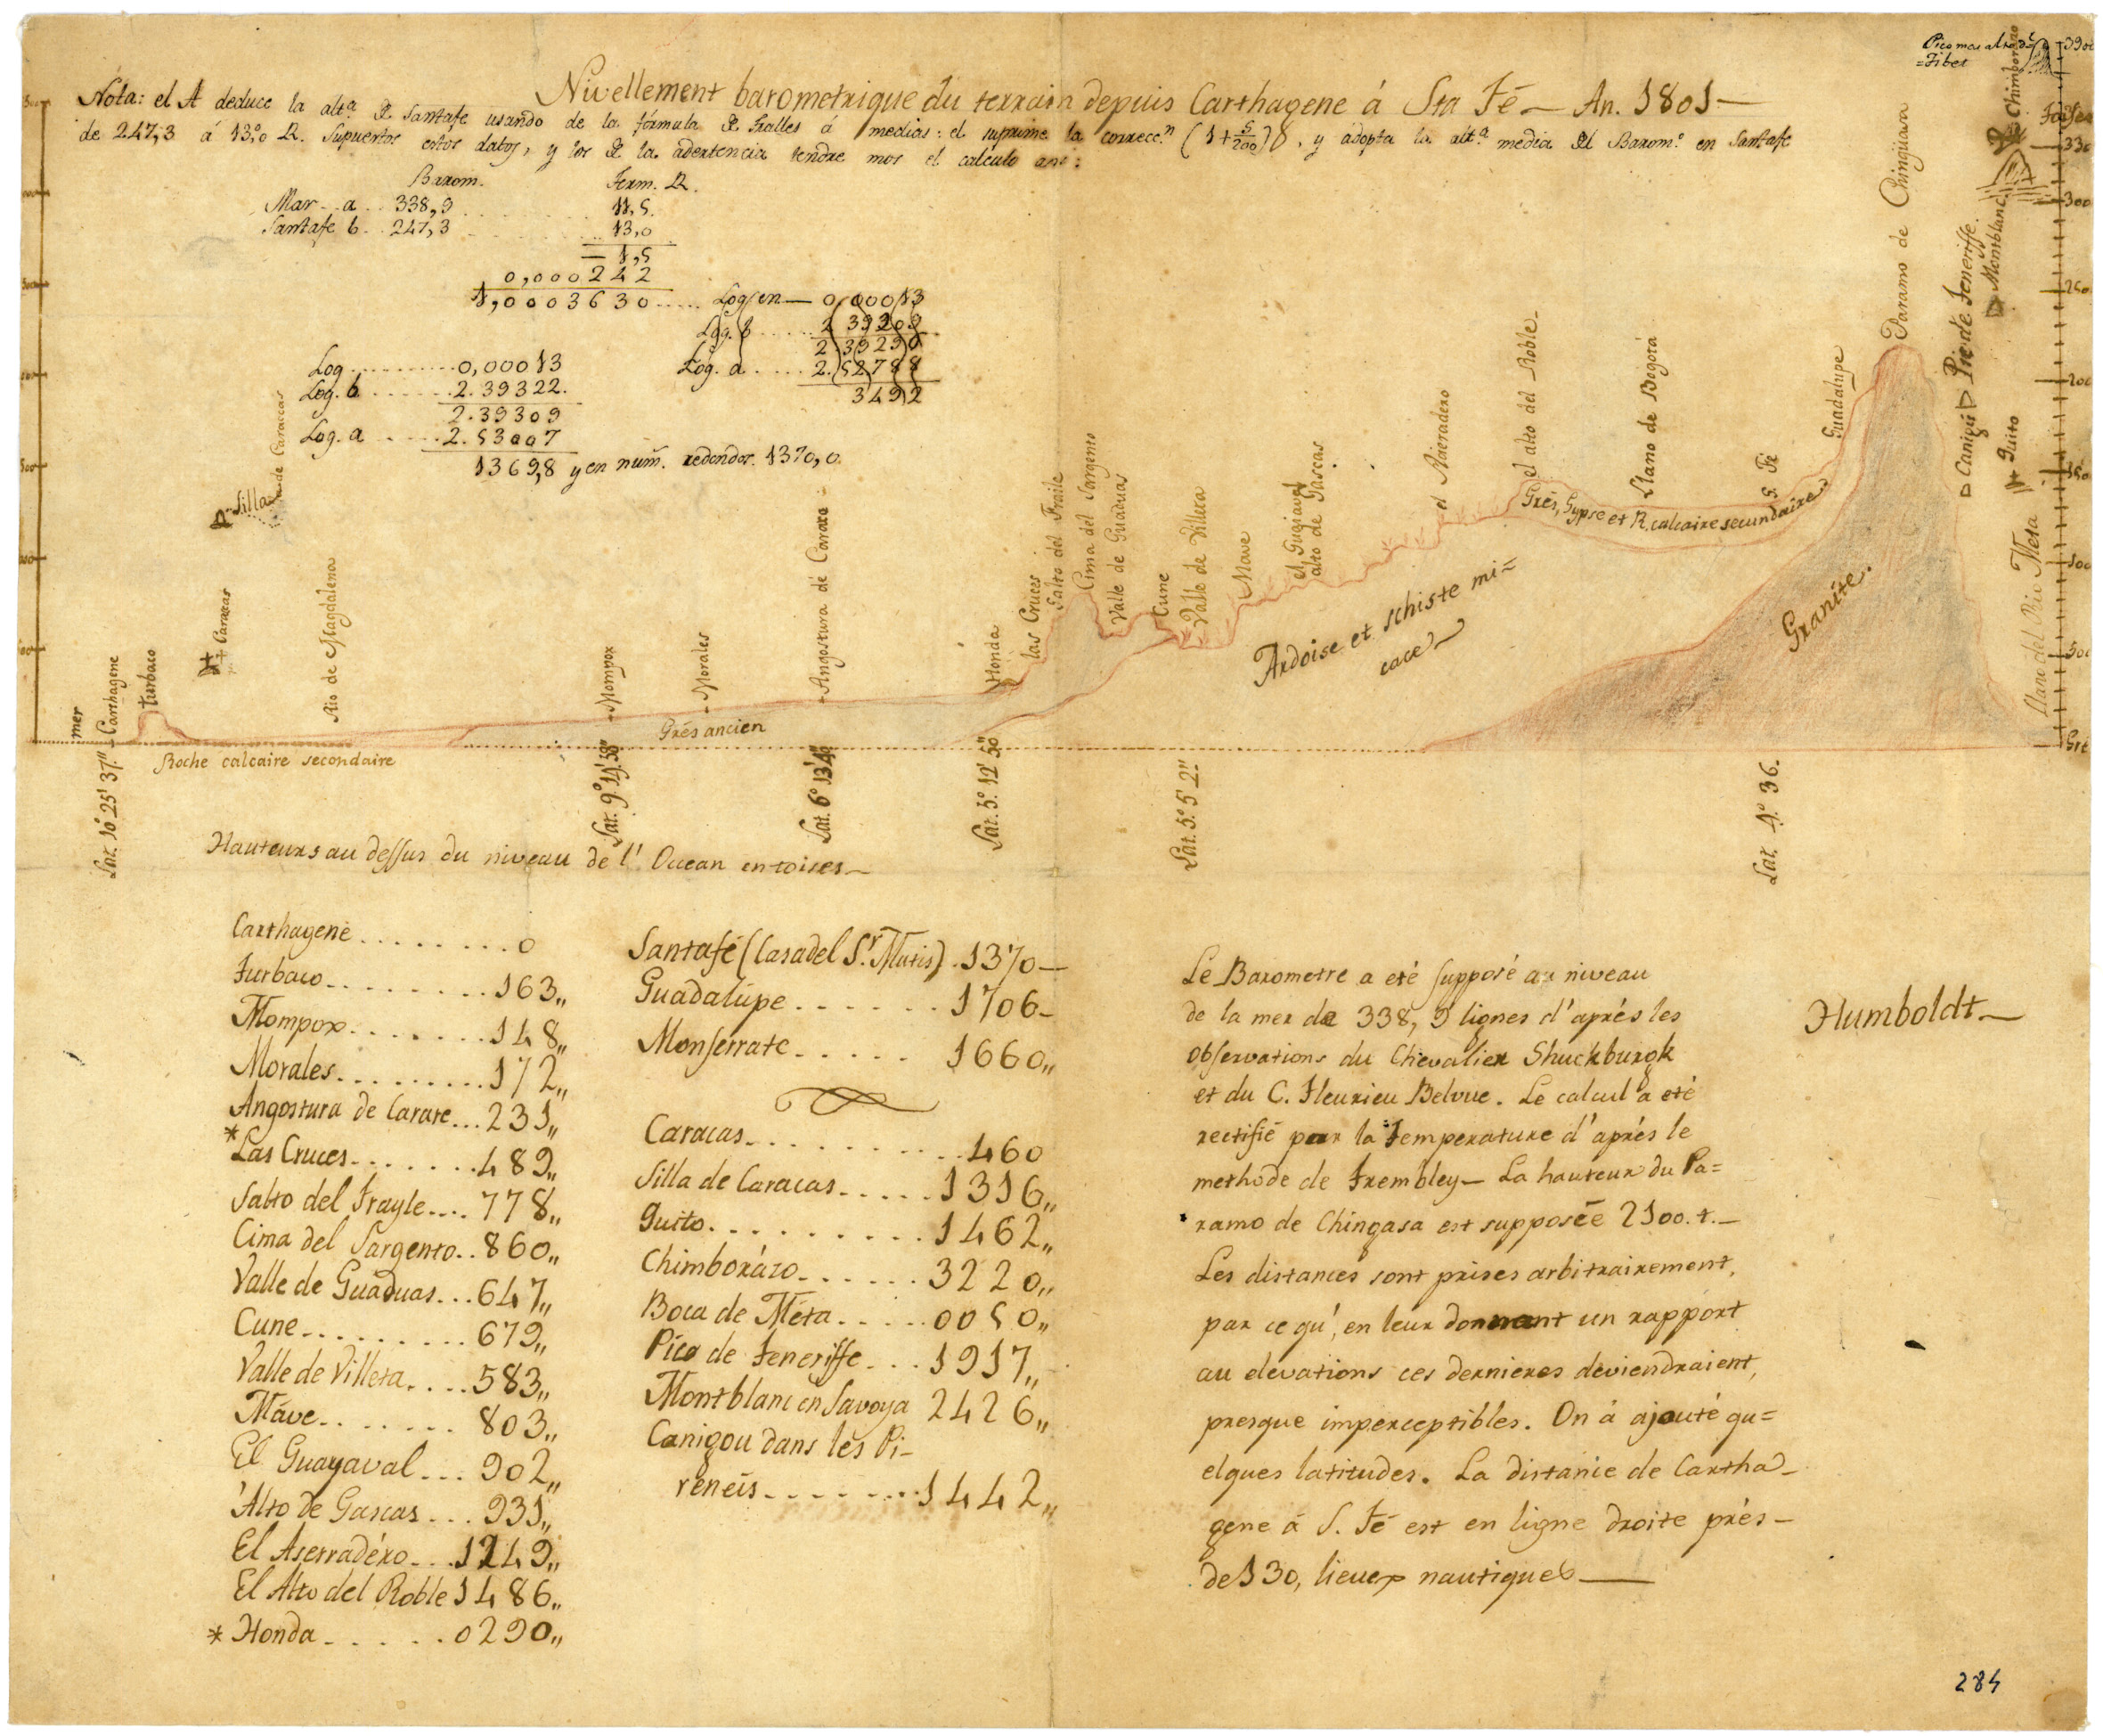 Nivellement barometrique du terrain depuis Carthagene á Sta Fé — An. 1801 —
Nota: el A deduce la alt.a de Santafe usando de la fórmula de Tralles á medias: el suprime la correcc.n (1+5/200), y adopta la alt.a media del Barom.o en Santafe
de 247,3 á 13,o R. Supuestos estos datos, y los de la adertencia tendre mos el calculo asi:
Barom. Term. R.
Mar .. a .. 338,9 ........ 11,5.
Santafe b .. 247,3 ........ 13,0
— 1,5
0,000242
1,0003630 ..... Log. en — 0,00013
Log. b ..... 2 39309
2 39290
Log. a ..... 2.52788
3492
Log .......... 0,00013
Log. b ...... 2.39322.
2.39309
Log. a ..... 2.53007
1369,8 y en num. redondos. 1370,0
Pico mas alto del
=Tibet
Chimborazo
Toises
390
330
300
250
200
150
100
50
mer
Carthagene
Turbaco
Caracas
Silla de Caracas
Rio de Magdalena
Mompox
Morales
Angostura de Carare
Honda
las Cruces
Salto del Fraile
Cima del Sargento
Valle de Guaduas
Cune
Valle de Villeta
Mave
el Guajaval
alto de Gascas
el Aseradero
el alto del Roble
Llano de Bogotá
S. Fé
Guadalupe
Paramo de Chingasa
Canigú
Pic de Teneriffe
Montblanc
Quito
Llano del Rio Meta
Roche calcaire secondaire
Grés ancien
Ardoise et schiste mi=
cace
Grés, Gypse et R. calcaire secundaire
Granite.
Lat. 10° 25' 37".
Lat. 9° 14' 58"
Lat. 6° 13' 40"
Lat. 5° 12' 50"
Lat. 5° 5' 2".
Lat. 4° 36.
Hauteurs au dessus du niveau de l' Ocean en toises —
Carthagene ......... 0
Turbaco ......... 163,,
Mompox ....... 148,,
Morales ......... 172,,
Angostura de Carare ... 231,,
*Las Cruces ....... 489,,
Salto del Frayle .... 778,,
Cima del Sargento .. 860,,
Valle de Guaduas ... 647,,
Cune ......... 679,,
Valle de Villeta .... 583,,
Máve ....... 803,,
El Guayaval ... 902,,
Alto de Gascas ... 931,,
El Aserradéro ... 1249,,
El Alto del Roble 1486,,
* Honda ..... 0290,,
Santafé (Casa del S.r Mutis) . 1370 —
Guadalúpe ...... 1706 -
Monserrate ..... 1660,,
Caracas ......... 460
Silla de Caracas ..... 1316,,
Quito ......... 1462,,
Chimborázo ...... 3220,,
Boca de Méta ..... 0050,,
Pico de Teneriffe ... 1917,,
Montblanc en Savoya 2426,,
Canigou dans les Pi-
reneis ....... 1442,,
Le Barometre a eté supposé au niveau
de la mer de 338,9 lignes d'aprés les
observations du Chevalier Shuckburgk
et du C. Fleurieu Belvue. Le calcul a eté
rectifié par la temperature d'aprés le
methode de Trembley — La hauteur du Pa=
ramo de Chingasa est supposée 2100. t. —
Les distances sont prises arbitrairement,
par ce qu', en leur donnant un rapport
au elevations ces dernieres deviendraient,
presque imperceptibles. On á ajouté qu=
elques latitudes. La distance de Cartha-
gene á S. Fé est en ligne droite prés -
de 130, lieues nautiques —
Humboldt —
284